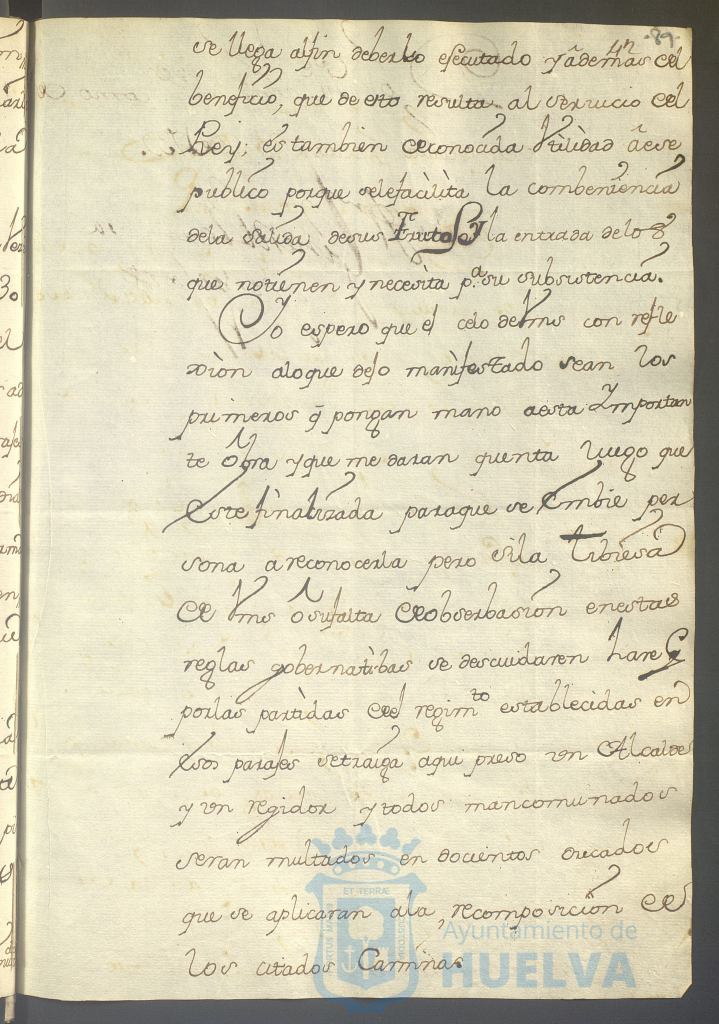 -89-
4n
se llega alfin deberlo efecutado y ademas del
beneficio, que de esto resulta al servicio del
Rey; es tambien deconocida Vtilidad ã ese
publico porque selefacilita la combeniencia
dela salida desus Frutos y la entrada delos
que notienen y necesita p.ª su subsistencia.
Yo espero que el celo deVms con refle
xion aloque dejo manifestado sean los
primeros q̃ pongan mano aesta Ymportan
te obra y que me daran quenta luego que
este finalizada paraque se embie per
sona areconocerla pero sila tibiesa
de Vms o sufalta deobserbasion enestas
reglas gobernatibas se descuidaren hare q̃
porlas partidas del regim.to establecidas en
esos parajes setraiga aqui preso un Alcalde
y un regidor y todos mancomunados
seran multados en docientos ducados
que se aplicaran ala recomposicion de
los citados Caminos.
ET TERRÆ
Ayuntamiento de
HUELVA